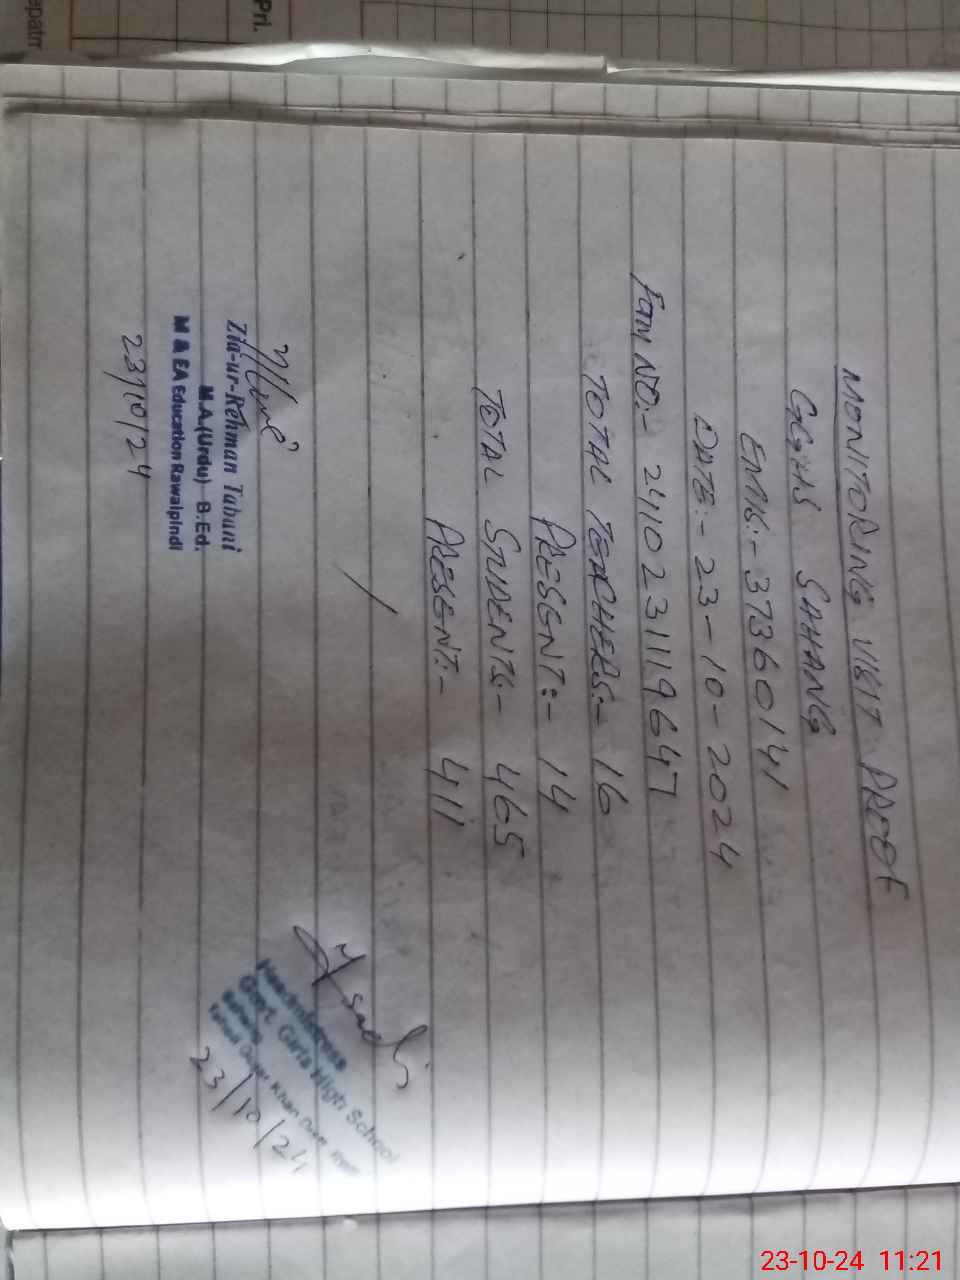 MONITORING VISIT PROOF
GGHS SAHANG
EMIS:- 37360141
DATE:- 23-10-2024
TOTAL TEACHERS:- 16
PRESENT:- 14
TOTAL STUDENTS:- 465
PRESENT:- 411
Zia-ur-Rehman Tabani
M.A.(Urdu) B.Ed.
M & EA Education Rawalpindi
23/10/24
Headmistress
Govt. Girls High School
Sahang
Khan
23/10/24
Pri.
23-10-24 11:21